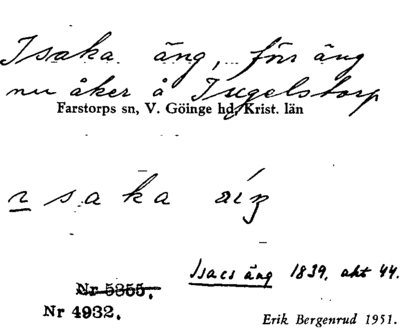 Isaka äng, förr äng
nu åker å Ingelstorp
Farstorps sn, V. Göinge hd, Krist. län
ɪsaka
Isacs äng 1839, akt 44.
Nr 5355.
Nr 4932.
Erik Bergenrud 1951.